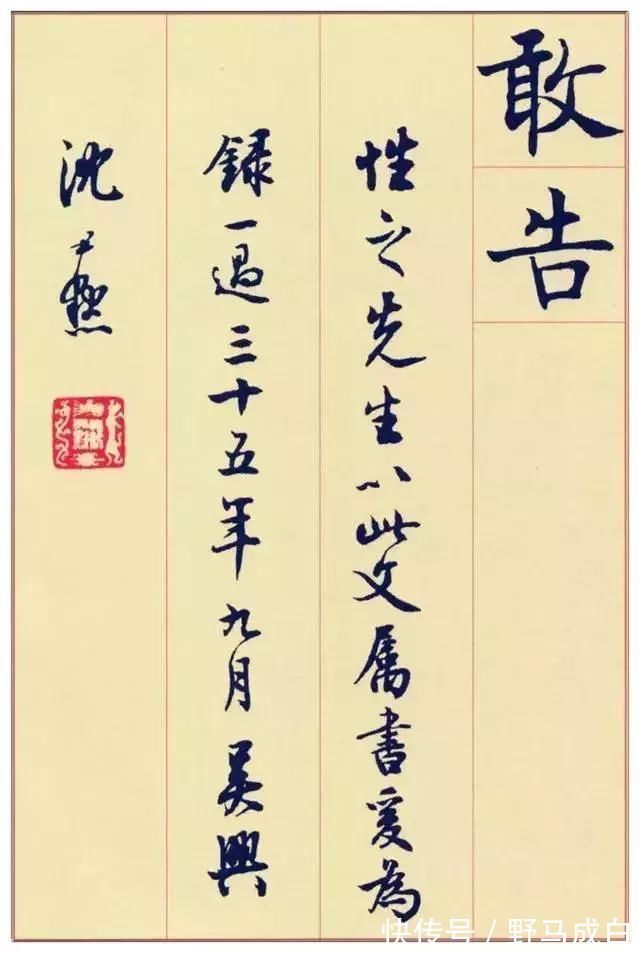 敢告
性之先生以此文属書爰為
録一過三十五年九月吴興
沈尹默
快传号／野马成白